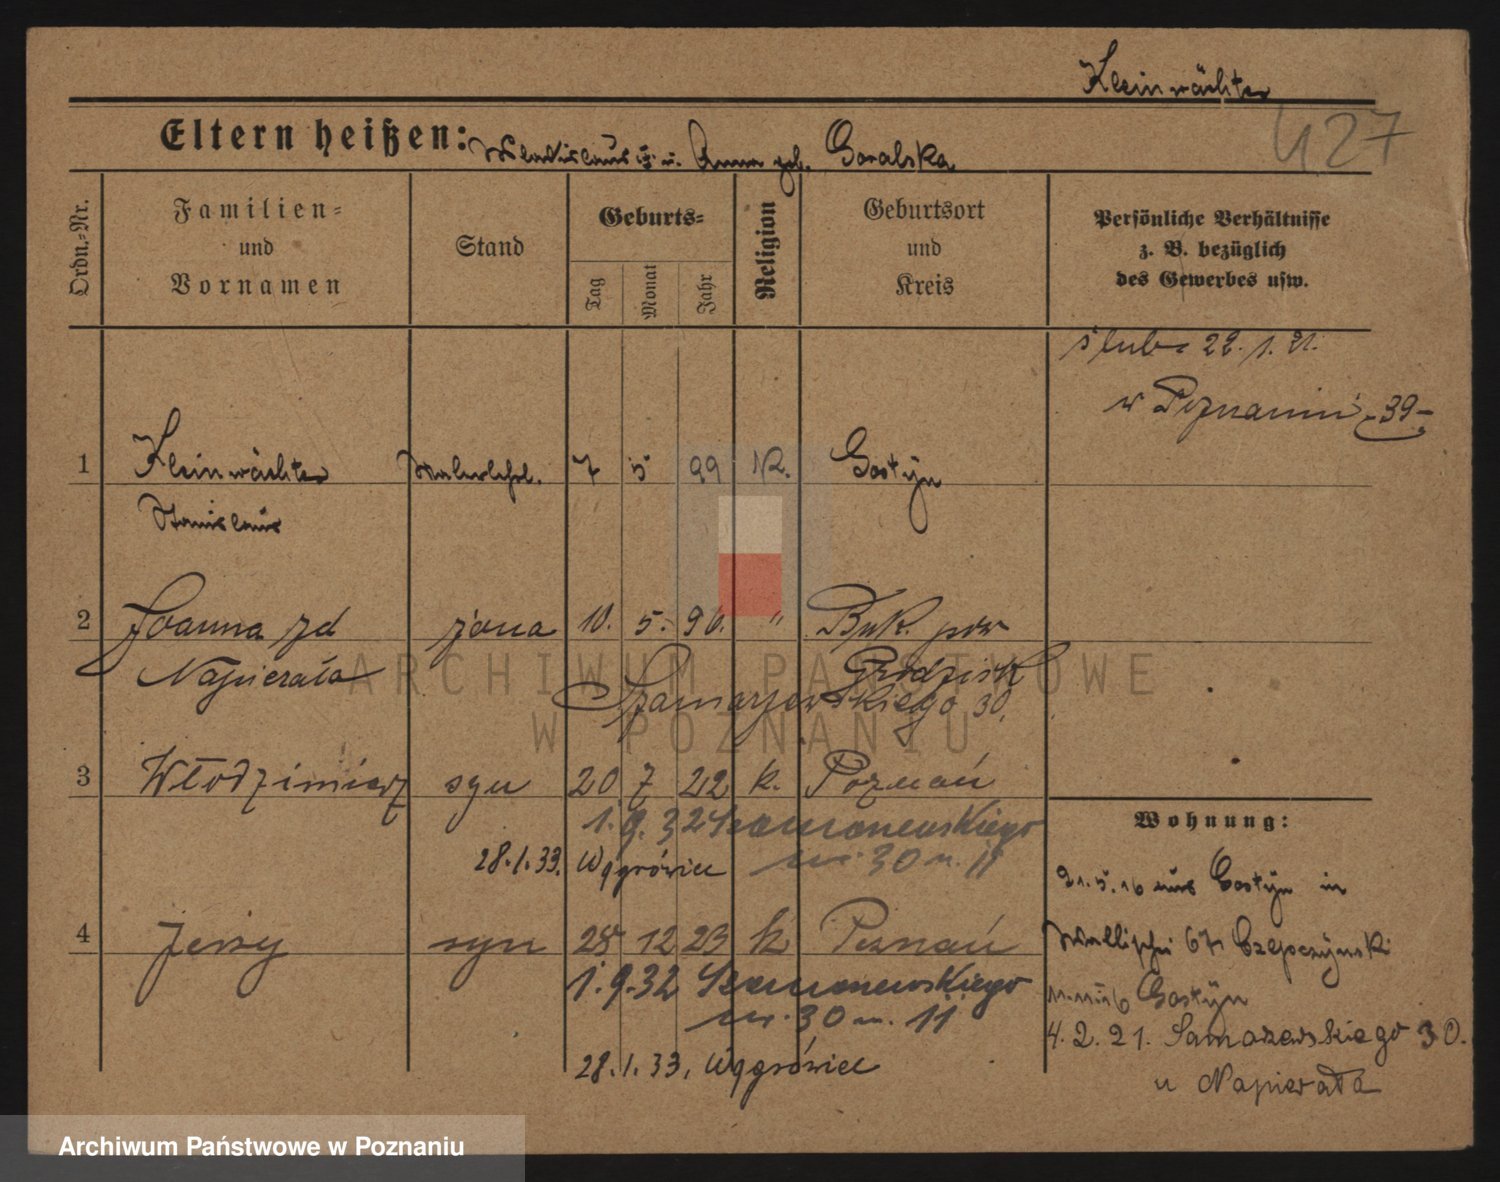 Kleinwächter
427
Eltern heißen: Wladislaus u. Anna geb. Goralska
Ordn.-Nr.
Familien- und Vornamen
Stand
Geburts-
Tag
Monat
Jahr
Religion
Geburtsort und Kreis
Persönliche Verhältnisse z. B. bezüglich des Gewerbes usw.
ślub 22. 1. 21.
w Poznaniu -39-
1 Kleinwächter Malerlehrl. 7 5 99 K. Gostyn
Stanislaus
2 Joanna zd żona 10. 5. 96. " Buk. pow
Napierała Grodzisk
Szamarzewskiego 30.
3 Włodzimierz syn 20 7 22 k. Poznań
1. 9. 32 Szamarzewskiego
nr. 30 m. 11
28.1.33. Wągrówiec
4 Jerzy syn 28 12 23 k Poznań
1. 9. 32 Szamarzewskiego
nr. 30 m. 11
28.1.33. Wągrówiec
Wohnung:
21.5.16 aus Gostyn in
Wallischei 67 Czepczynski
Gostyn
4. 2. 21. Samarzewskiego 30.
u Napierała
ARCHIWUM PAŃSTWOWE
W POZNANIU
Archiwum Państwowe w Poznaniu